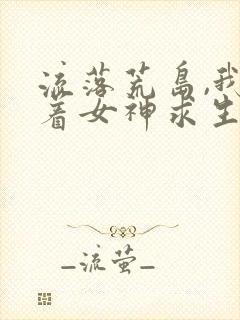 流落荒岛,我
着女神求生
_流萤_